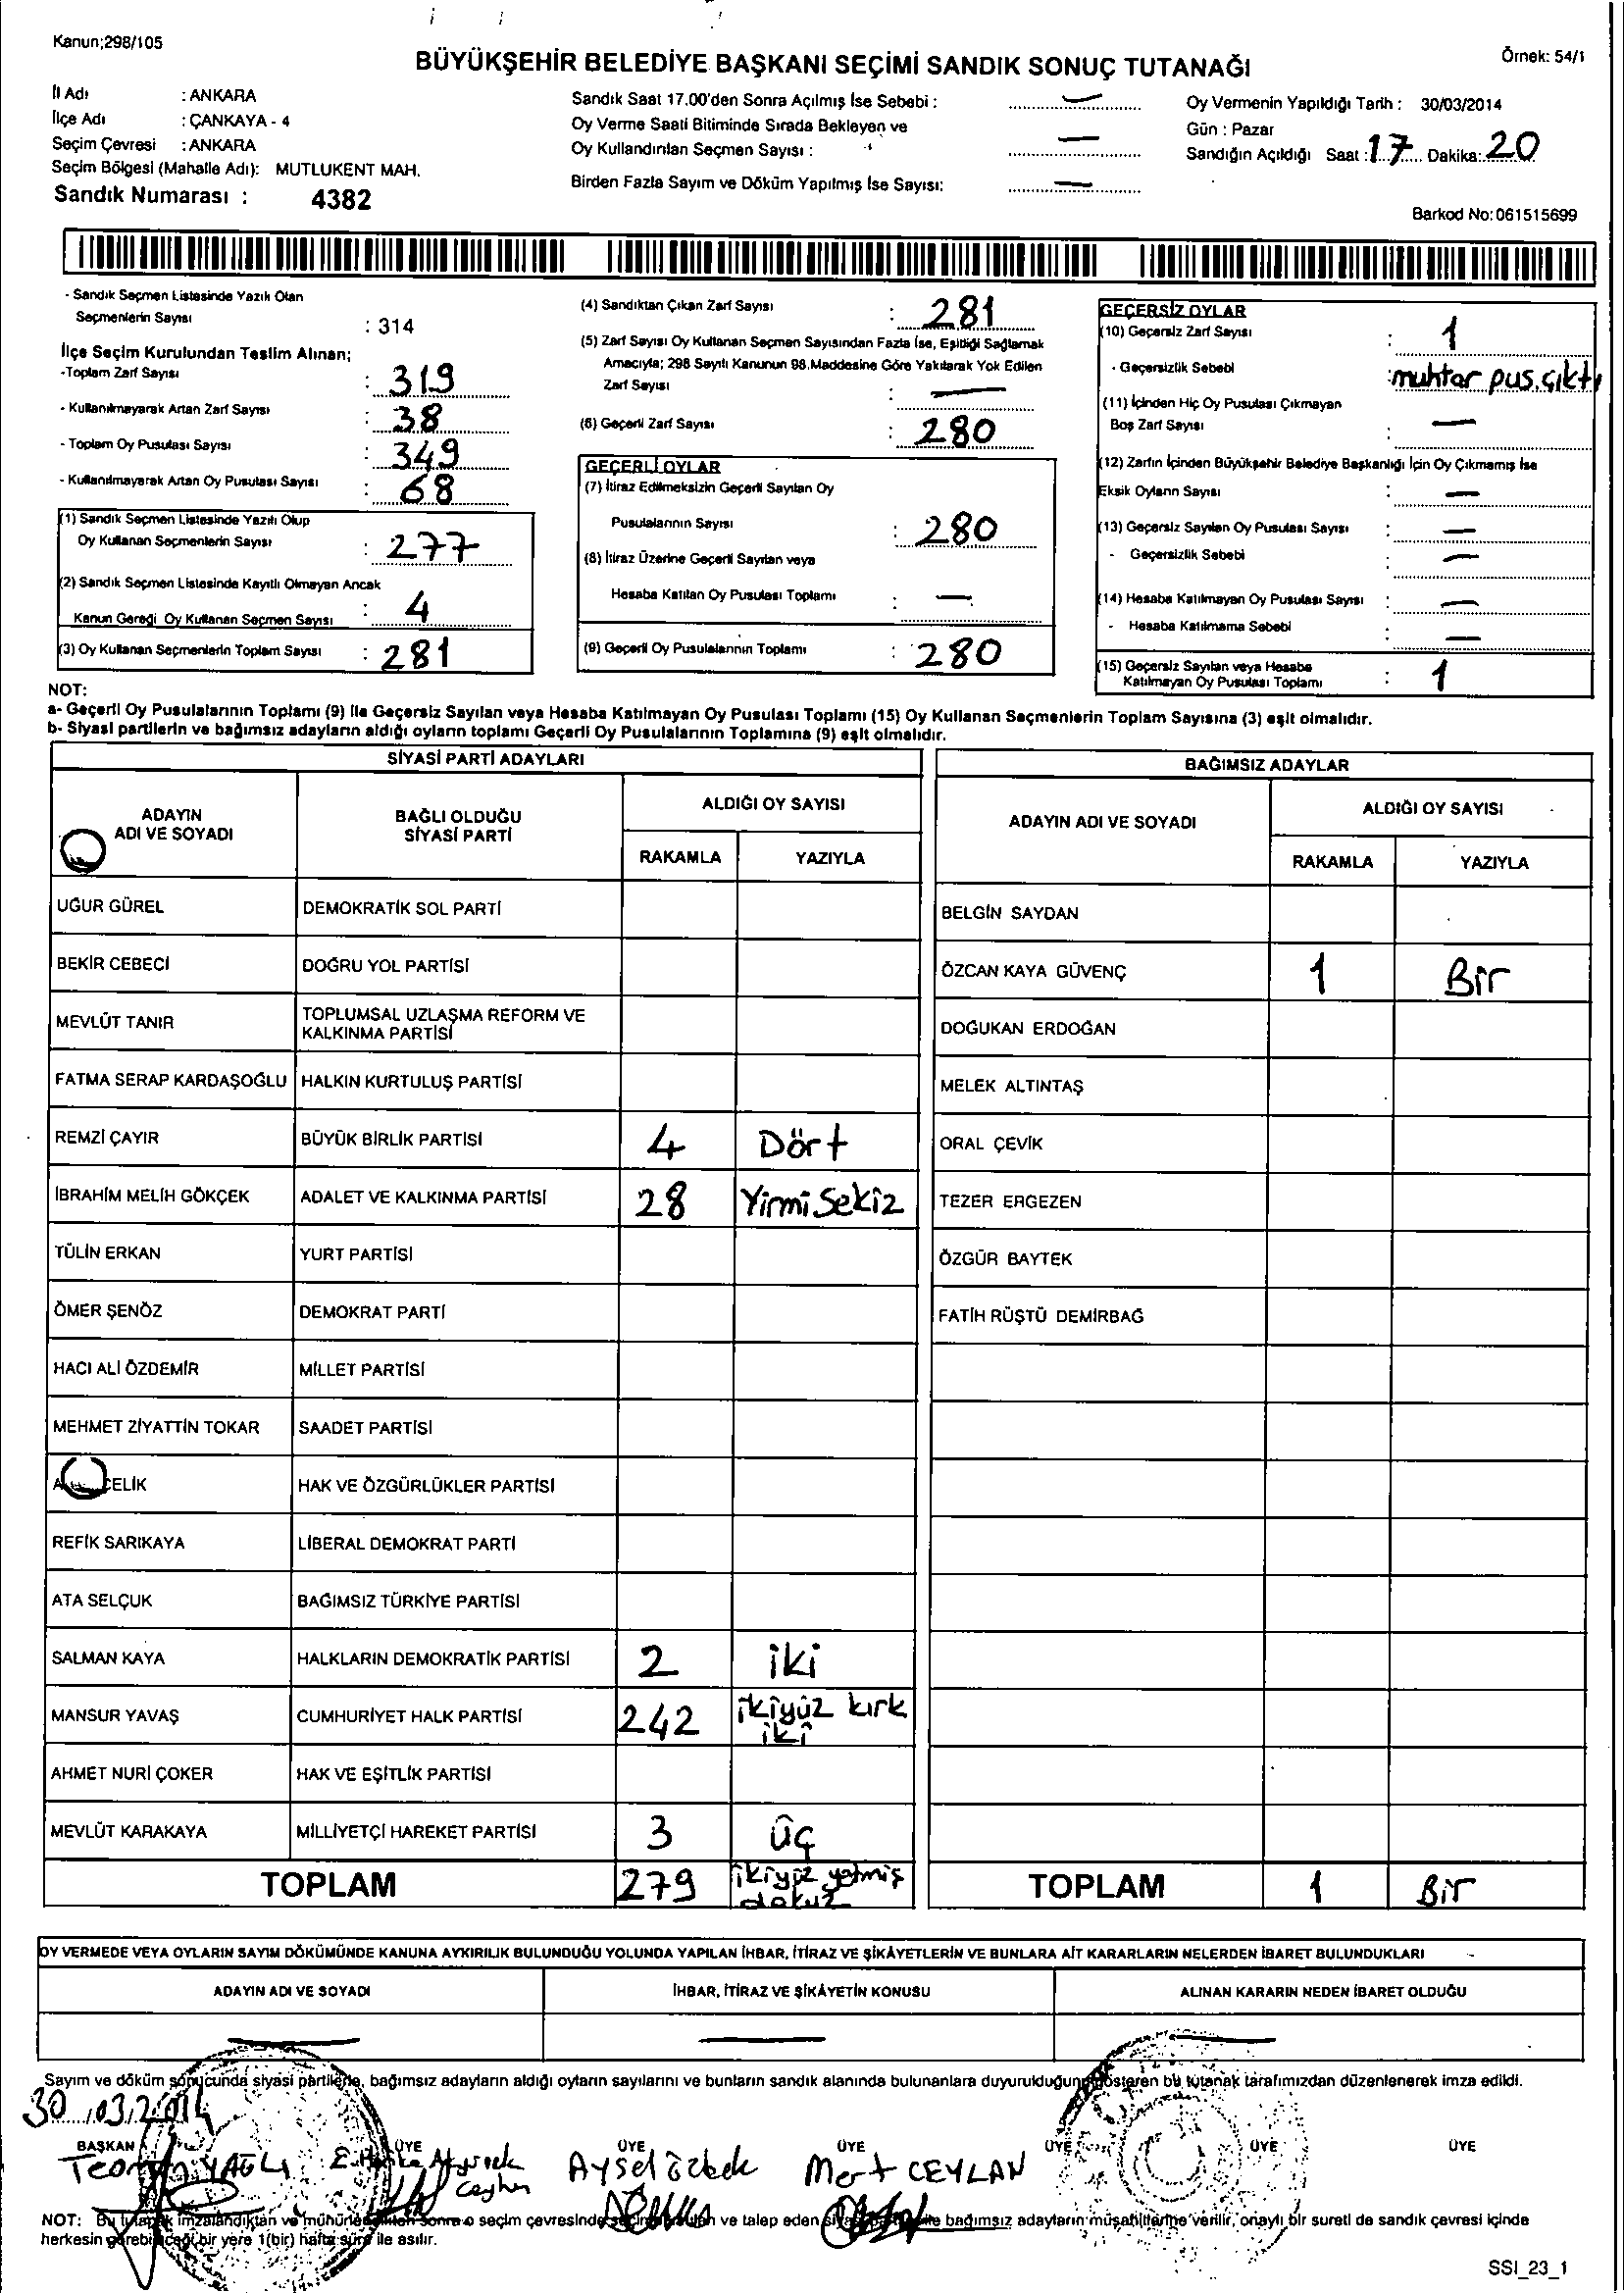 Kanun;298/105
BÜYÜKŞEHİR BELEDİYE BAŞKANI SEÇİMİ SANDIK SONUÇ TUTANAĞI
Örnek: 54/1
İl Adı : ANKARA
İlçe Adı : ÇANKAYA - 4
Seçim Çevresi : ANKARA
Seçim Bölgesi (Mahalle Adı): MUTLUKENT MAH.
Sandık Numarası : 4382
Sandık Saat 17.00'den Sonra Açılmış İse Sebebi : —
Oy Verme Saati Bitiminde Sırada Bekleyen ve
Oy Kullandırılan Seçmen Sayısı : —
Birden Fazla Sayım ve Döküm Yapılmış İse Sayısı: —
Oy Vermenin Yapıldığı Tarih : 30/03/2014
Gün : Pazar
Sandığın Açıldığı Saat : 17 Dakika: 20
Barkod No: 061515699
- Sandık Seçmen Listesinde Yazılı Olan
Seçmenlerin Sayısı : 314
İlçe Seçim Kurulundan Teslim Alınan;
-Toplam Zarf Sayısı : 319
- Kullanılmayarak Artan Zarf Sayısı : 38
- Toplam Oy Pusulası Sayısı : 349
- Kullanılmayarak Artan Oy Pusulası Sayısı : 68
(1) Sandık Seçmen Listesinde Yazılı Olup
Oy Kullanan Seçmenlerin Sayısı : 277
(2) Sandık Seçmen Listesinde Kayıtlı Olmayan Ancak
Kanun Gereği Oy Kullanan Seçmen Sayısı : 4
(3) Oy Kullanan Seçmenlerin Toplam Sayısı : 281
(4) Sandıktan Çıkan Zarf Sayısı : 281
(5) Zarf Sayısı Oy Kullanan Seçmen Sayısından Fazla İse, Eşitliği Sağlamak
Amacıyla; 298 Sayılı Kanunun 98.Maddesine Göre Yakılarak Yok Edilen
Zarf Sayısı : —
(6) Geçerli Zarf Sayısı : 280
GEÇERLİ OYLAR
(7) İtiraz Edilmeksizin Geçerli Sayılan Oy
Pusulalarının Sayısı : 280
(8) İtiraz Üzerine Geçerli Sayılan veya
Hesaba Katılan Oy Pusulası Toplamı : —
(9) Geçerli Oy Pusulalarının Toplamı : 280
GEÇERSİZ OYLAR
(10) Geçersiz Zarf Sayısı : 1
- Geçersizlik Sebebi : muhtar pus. çıktı
(11) İçinden Hiç Oy Pusulası Çıkmayan
Boş Zarf Sayısı : —
(12) Zarfın İçinden Büyükşehir Belediye Başkanlığı İçin Oy Çıkmamış İse
Eksik Oyların Sayısı : —
(13) Geçersiz Sayılan Oy Pusulası Sayısı : —
- Geçersizlik Sebebi : —
(14) Hesaba Katılmayan Oy Pusulası Sayısı : —
- Hesaba Katılmama Sebebi : —
(15) Geçersiz Sayılan veya Hesaba
Katılmayan Oy Pusulası Toplamı : 1
NOT:
a- Geçerli Oy Pusulalarının Toplamı (9) ile Geçersiz Sayılan veya Hesaba Katılmayan Oy Pusulası Toplamı (15) Oy Kullanan Seçmenlerin Toplam Sayısına (3) eşit olmalıdır.
b- Siyasi partilerin ve bağımsız adayların aldığı oyların toplamı Geçerli Oy Pusulalarının Toplamına (9) eşit olmalıdır.
SİYASİ PARTİ ADAYLARI
ADAYIN ADI VE SOYADI BAĞLI OLDUĞU SİYASİ PARTİ ALDIĞI OY SAYISI
RAKAMLA YAZIYLA
UĞUR GÜREL DEMOKRATİK SOL PARTİ
BEKİR CEBECİ DOĞRU YOL PARTİSİ
MEVLÜT TANIR TOPLUMSAL UZLAŞMA REFORM VE KALKINMA PARTİSİ
FATMA SERAP KARDAŞOĞLU HALKIN KURTULUŞ PARTİSİ
REMZİ ÇAYIR BÜYÜK BİRLİK PARTİSİ 4 Dört
İBRAHİM MELİH GÖKÇEK ADALET VE KALKINMA PARTİSİ 28 Yirmi Sekiz
TÜLİN ERKAN YURT PARTİSİ
ÖMER ŞENÖZ DEMOKRAT PARTİ
HACI ALİ ÖZDEMİR MİLLET PARTİSİ
MEHMET ZİYATTİN TOKAR SAADET PARTİSİ
ÇELİK HAK VE ÖZGÜRLÜKLER PARTİSİ
REFİK SARIKAYA LİBERAL DEMOKRAT PARTİ
ATA SELÇUK BAĞIMSIZ TÜRKİYE PARTİSİ
SALMAN KAYA HALKLARIN DEMOKRATİK PARTİSİ 2 iki
MANSUR YAVAŞ CUMHURİYET HALK PARTİSİ 242 ikiyüz kırk iki
AHMET NURİ ÇOKER HAK VE EŞİTLİK PARTİSİ
MEVLÜT KARAKAYA MİLLİYETÇİ HAREKET PARTİSİ 3 üç
TOPLAM 279 ikiyüz yetmiş dokuz
BAĞIMSIZ ADAYLAR
ADAYIN ADI VE SOYADI ALDIĞI OY SAYISI
RAKAMLA YAZIYLA
BELGİN SAYDAN
ÖZCAN KAYA GÜVENÇ 1 Bir
DOĞUKAN ERDOĞAN
MELEK ALTINTAŞ
ORAL ÇEVİK
TEZER ERGEZEN
ÖZGÜR BAYTEK
FATİH RÜŞTÜ DEMİRBAĞ
TOPLAM 1 Bir
OY VERMEDE VEYA OYLARIN SAYIM DÖKÜMÜNDE KANUNA AYKIRILIK BULUNDUĞU YOLUNDA YAPILAN İHBAR, İTİRAZ VE ŞİKÂYETLERİN VE BUNLARA AİT KARARLARIN NELERDEN İBARET BULUNDUKLARI
ADAYIN ADI VE SOYADI İHBAR, İTİRAZ VE ŞİKÂYETİN KONUSU ALINAN KARARIN NEDEN İBARET OLDUĞU
— — —
Sayım ve döküm sonucunda siyasi partilerle, bağımsız adayların aldığı oyların sayılarını ve bunların sandık alanında bulunanlara duyurulduğunu gösteren bu tutanak tarafımızdan düzenlenerek imza edildi.
30/03/2014
BAŞKAN ÜYE ÜYE ÜYE ÜYE ÜYE ÜYE
Teoman YAĞLI Ceyhun Aysel Özbek Mert CEYLAN
NOT: Bu tutanak imzalandıktan ve mühürlendikten sonra o seçim çevresinde ve talep eden bağımsız adayların müşahitlerine verilir, onaylı bir sureti de sandık çevresi içinde
herkesin görebileceği bir yere 1(bir) hafta süre ile asılır.
SSI_23_1